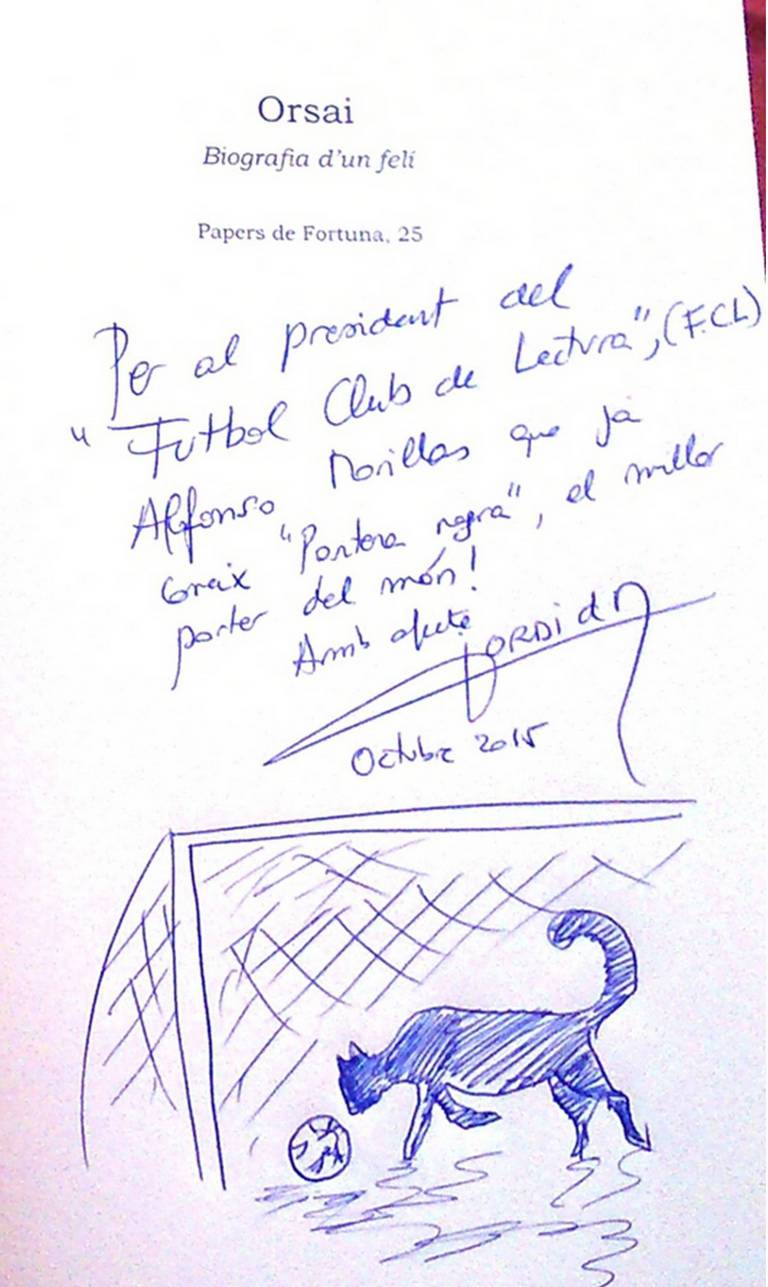 Orsai
Biografia d'un felí
Papers de Fortuna, 25
Per al president del
"Futbol Club de Lectura", (F.C.L)
Alfonso Morillas que ja
coneix "Pantera negra", el millor
porter del món!
Amb afecte
Octubre 2015